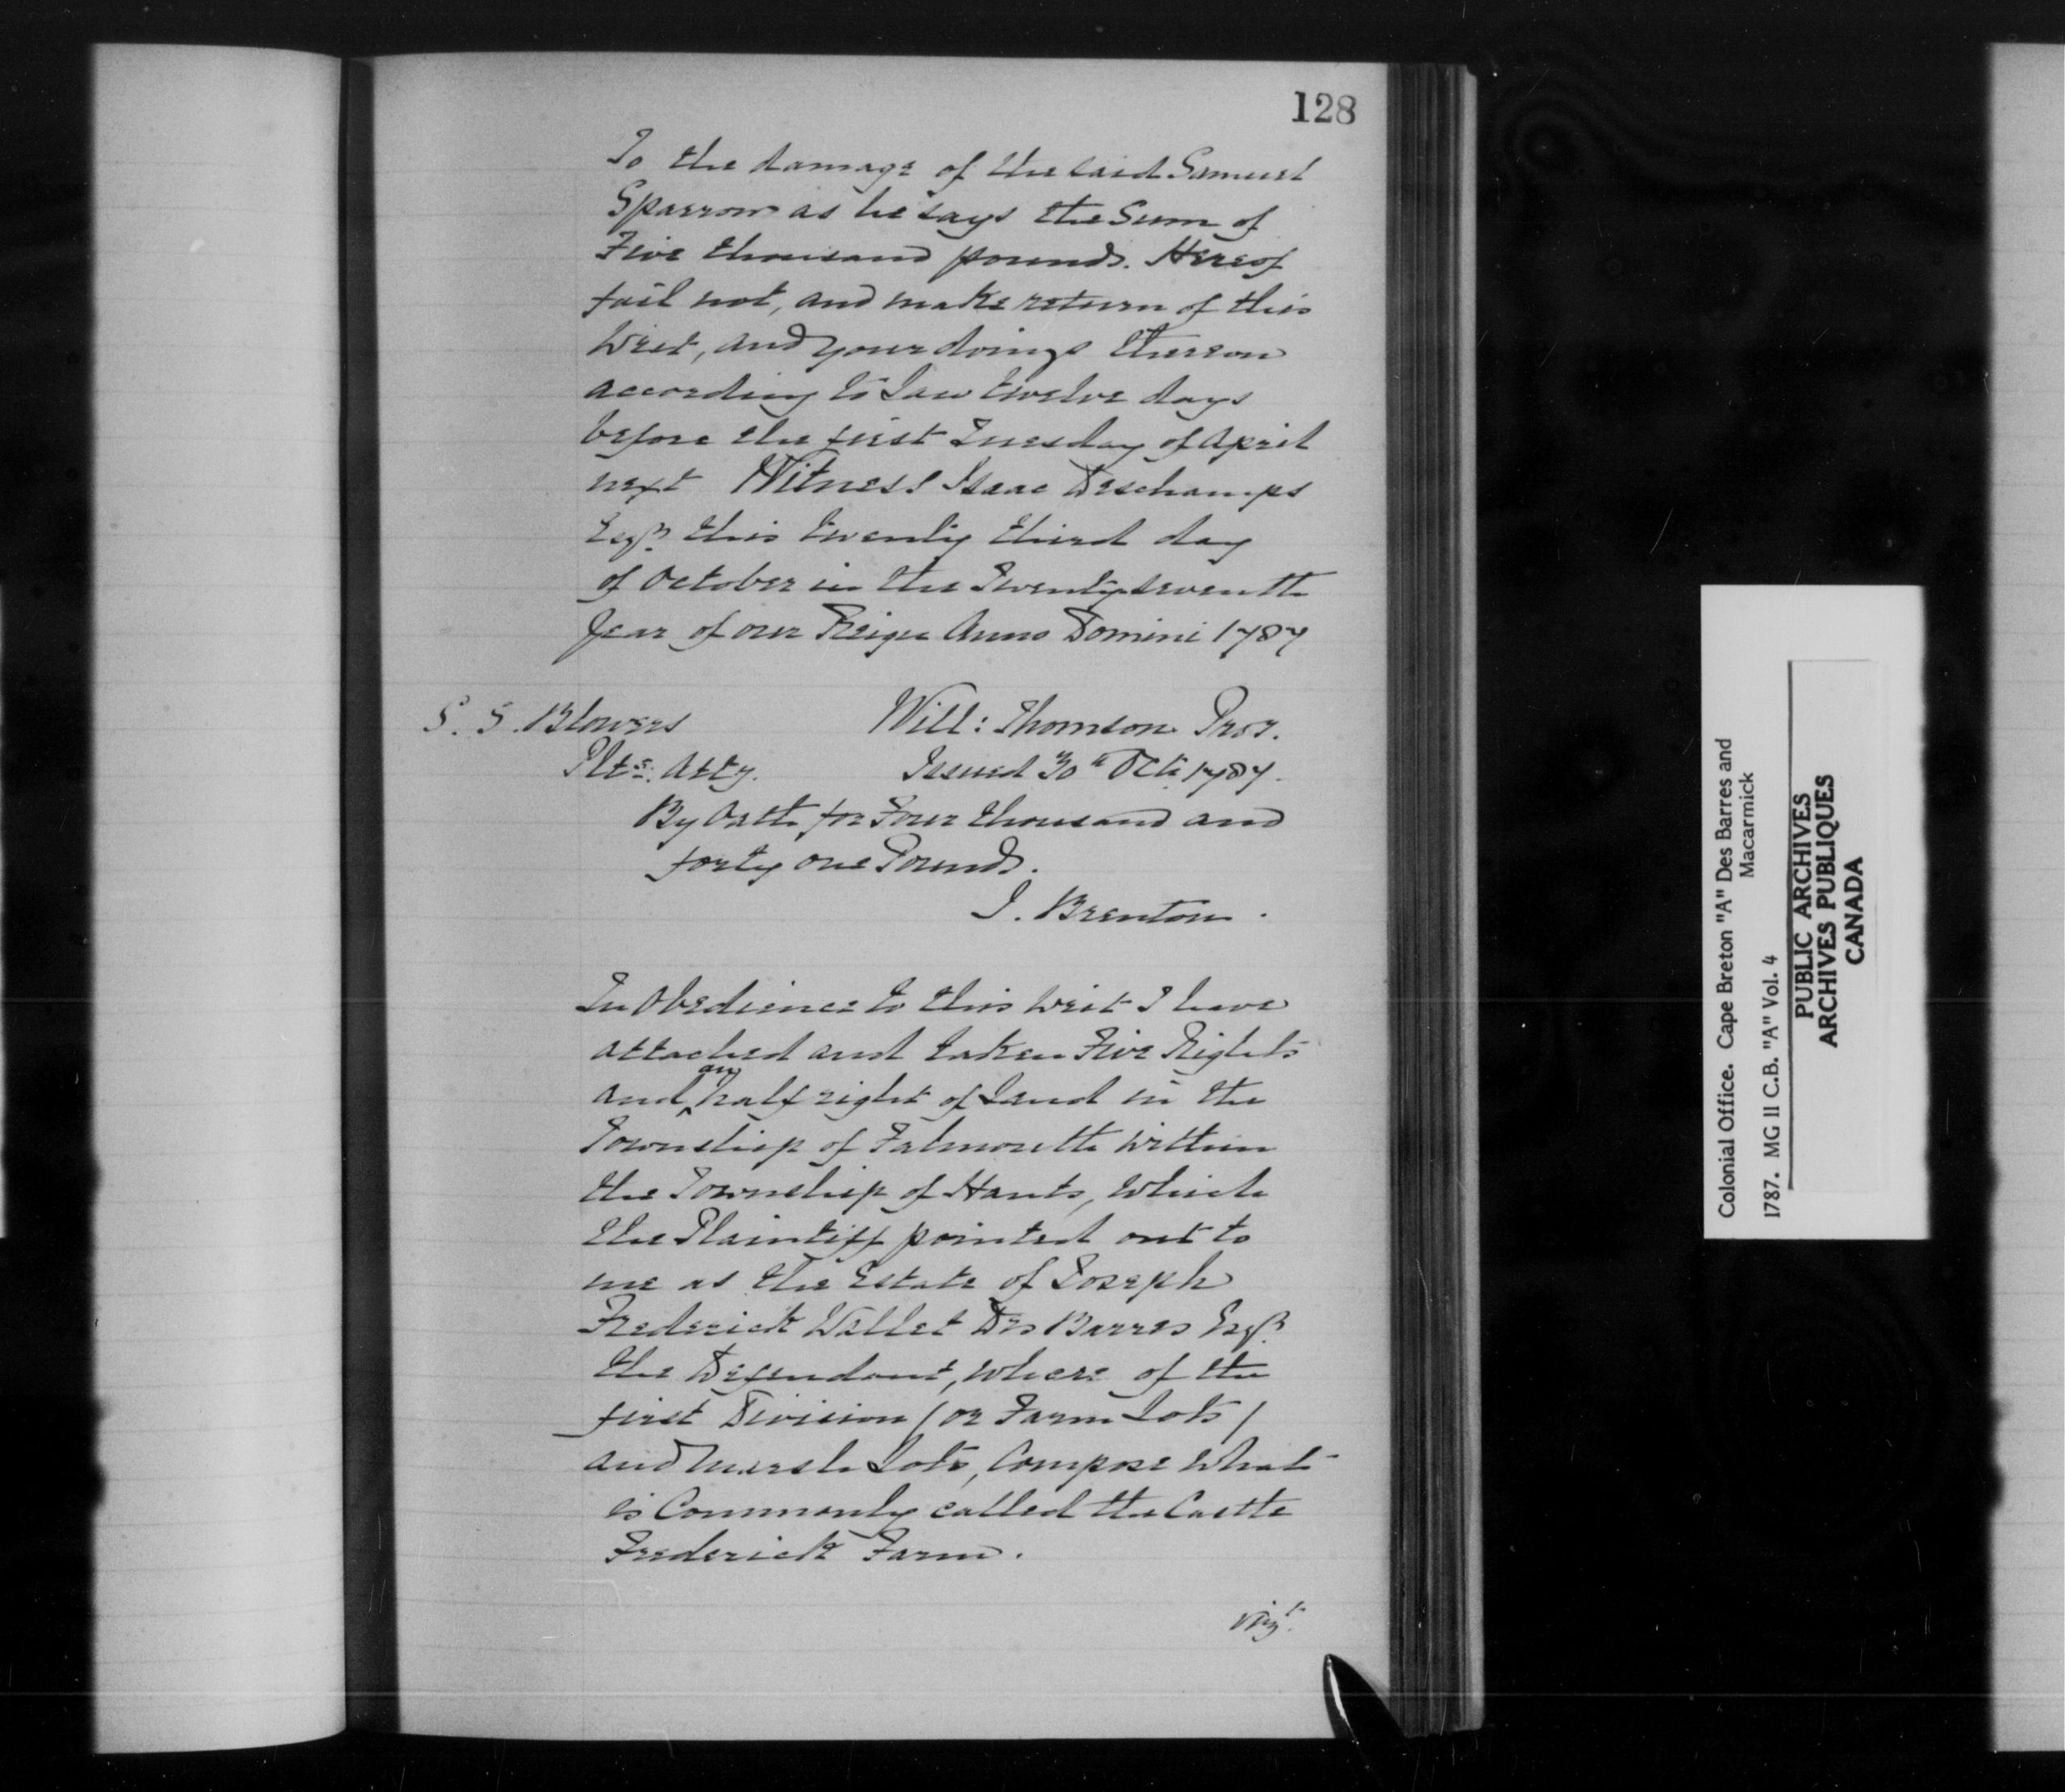 128
To the damage of the said Samuel
Sparrow as he says the Sum of
Five thousand pounds. Hereof
fail not, and make return of this
Writ, and your doings thereon
according to Law twelve days
before the first Tuesday of April
next Witness Isaac Deschamps
Esqr. this twenty third day
of October in the Twenty seventh
Year of our Reign Anno Domini 1787
S. S. Blowers Will: Thomson Pror.
Plts. Atty. Issued 30th Octr. 1787.
By Oath for Four thousand and
forty one Pounds.
J. Brenton.
In Obedience to this Writ I have
attached and taken Five Rights
and any half right of Land in the
Township of Falmouth within
the Township of Hants, which
the Plaintiff pointed out to
me as the Estate of Joseph
Frederick Wallet Des Barres Esqr.
the Defendant, where of the
first Division (or Farm Lots)
and Marsh Lots, Compose what
is Commonly called the Castle
Frederick Farm.
vizt.
Colonial Office. Cape Breton "A" Des Barres and
Macarmick
1787. MG 11 C.B. "A" Vol. 4
PUBLIC ARCHIVES
ARCHIVES PUBLIQUES
CANADA